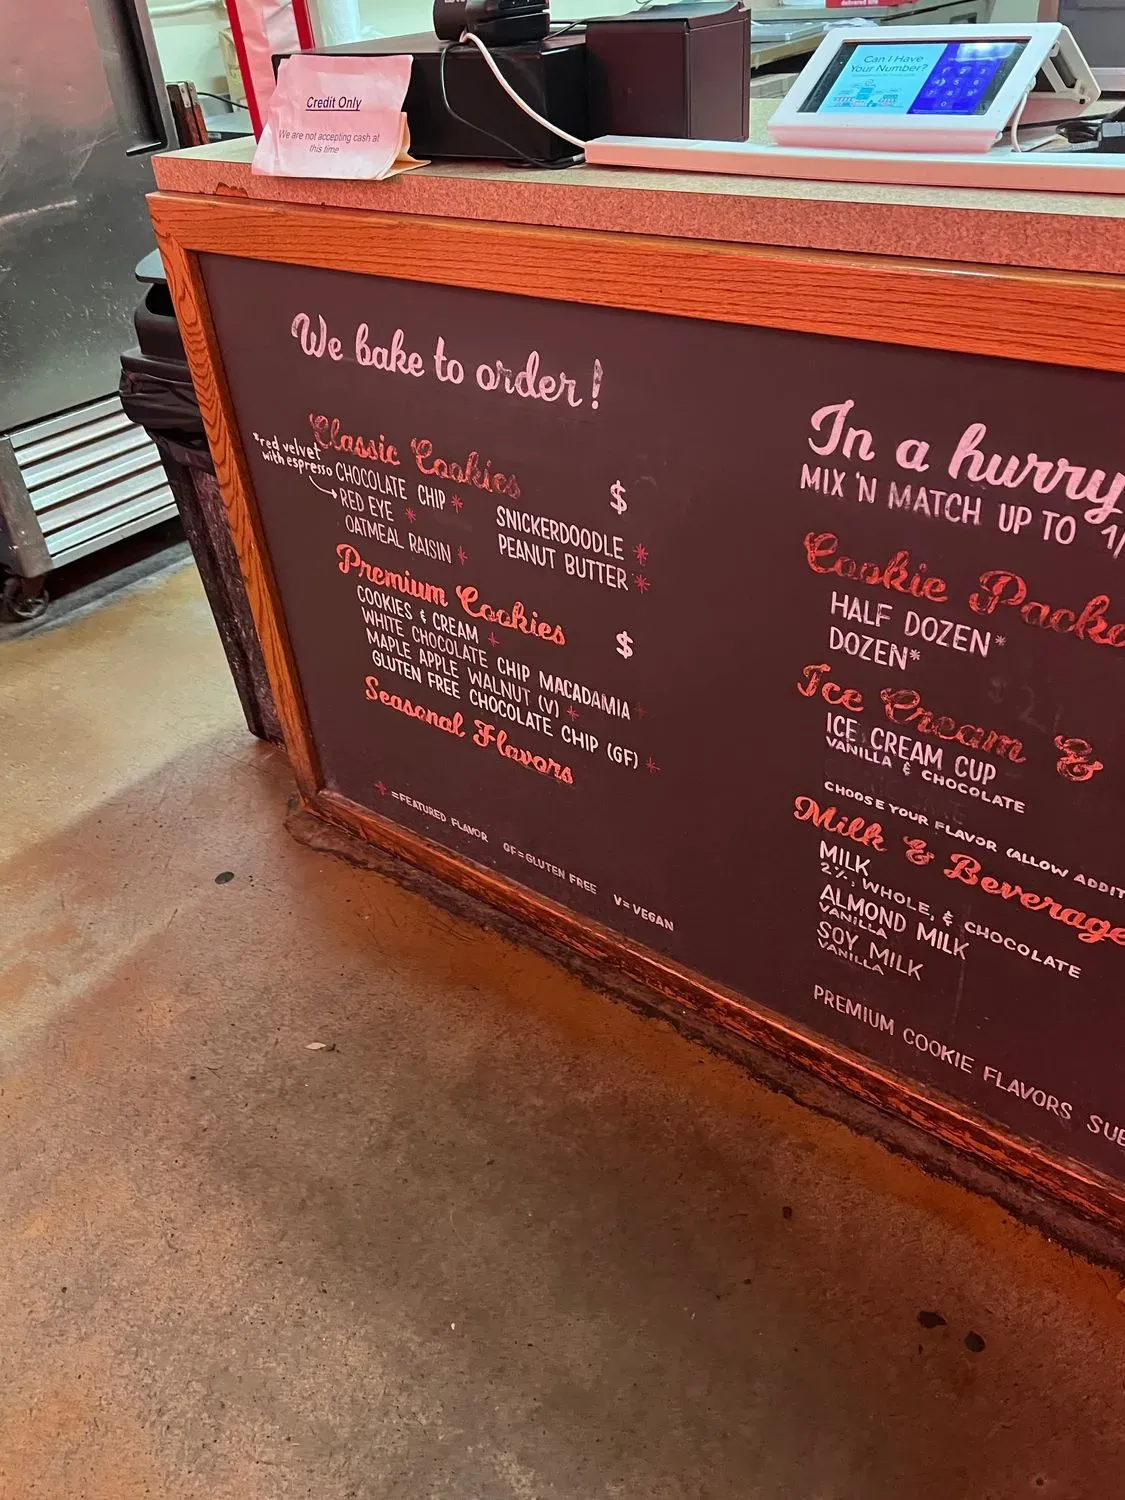 delivered
Can I Have
Your Number?
Credit Only
We are not accepting cash at
this time
We bake to order!
Classic Cookies $
*red velvet
with espresso
CHOCOLATE CHIP *
RED EYE *
OATMEAL RAISIN *
SNICKERDOODLE *
PEANUT BUTTER *
Premium Cookies $
COOKIES & CREAM *
WHITE CHOCOLATE CHIP MACADAMIA *
MAPLE APPLE WALNUT (V) *
GLUTEN FREE CHOCOLATE CHIP (GF) *
Seasonal Flavors
* =FEATURED FLAVOR GF=GLUTEN FREE V=VEGAN
In a hurry
MIX 'N MATCH UP TO 1/
Cookie Packa
HALF DOZEN*
DOZEN*
Ice Cream &
ICE CREAM CUP
VANILLA & CHOCOLATE
CHOOSE YOUR FLAVOR (ALLOW ADDIT
Milk & Beverage
MILK
2%, WHOLE, & CHOCOLATE
ALMOND MILK
VANILLA
SOY MILK
VANILLA
PREMIUM COOKIE FLAVORS SUB